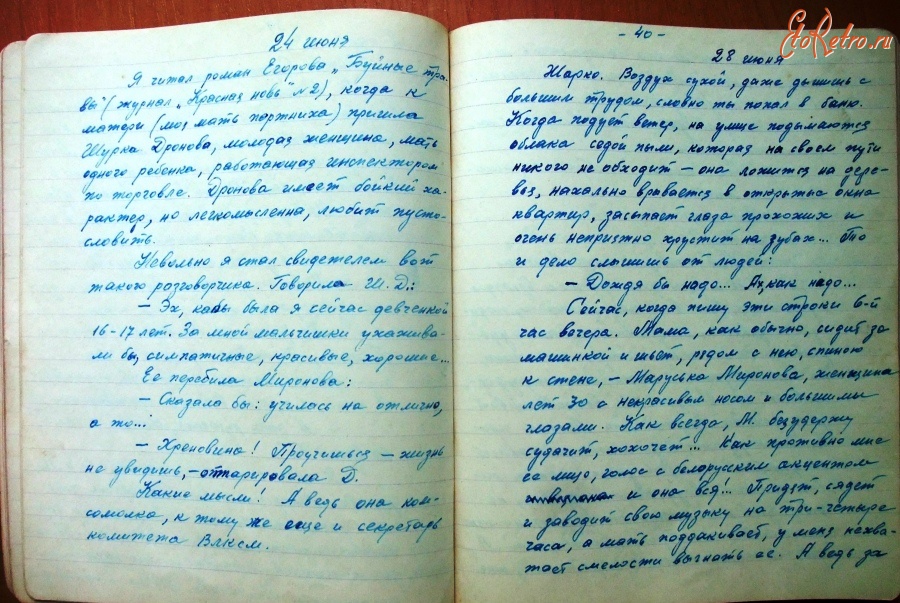 24 июня
Я читал роман Егорова „Буйные тра-
вы" (журнал „Красная новь" №2), когда к
матери (моя мать портниха) пришла
Шурка Дронова, молодая женщина, мать
одного ребенка, работающая инспектором
по торговле. Дронова имеет бойкий ха-
рактер, но легкомысленна, любит пусто-
словить.
Невольно я стал свидетелем вот
такого разговорчика. Говорила Ш. Д.:
– Эх, кабы была я сейчас девченкой
16-17 лет. За мной мальчишки ухажива-
ли бы, симпатичные, красивые, хорошие...
Ее перебила Миронова:
– Сказала бы: училась на отлично,
а то...
– Хреновина! Проучишься – жизнь
не увидишь, – отпарировала Д.
Какие мысли! А ведь она ком-
сомолка, к тому же еще и секретарь
комитета ВЛКСМ.
- 40 -
28 июня
Жарко. Воздух сухой, даже дышишь с
большим трудом, словно ты попал в баню.
Когда подует ветер, на улице подымаются
облака седой пыли, которая на своем пути
никого не обходит – она ложится на дере-
вья, нахально врывается в открытые окна
квартир, засыпает глаза прохожих и
очень неприятно хрустит на зубах... То
и дело слышишь от людей:
– Дождя бы надо... Ах, как надо...
Сейчас, когда пишу эти строки 6-й
час вечера. Мама, как обычно, сидит за
машинкой и шьет, рядом с нею, спиною
к стене, – Маруська Миронова, женщина
лет 30 с некрасивым носом и большими
глазами. Как всегда, М. безудержу
судачит, хохочет... Как противно мне
ее лицо, голос с белорусским акцентом
и она вся!.. Придет, сядет
и заводит свою музыку на три-четыре
часа, а мать поддакивает, у меня нехва-
тает смелости выгнать ее. А ведь за
EtoRetro.ru